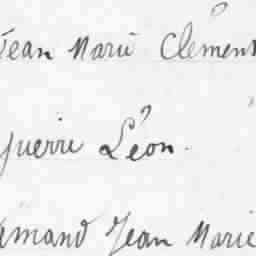 Jean Marie Clément
Guerri Léon.
Armand Jean Marie